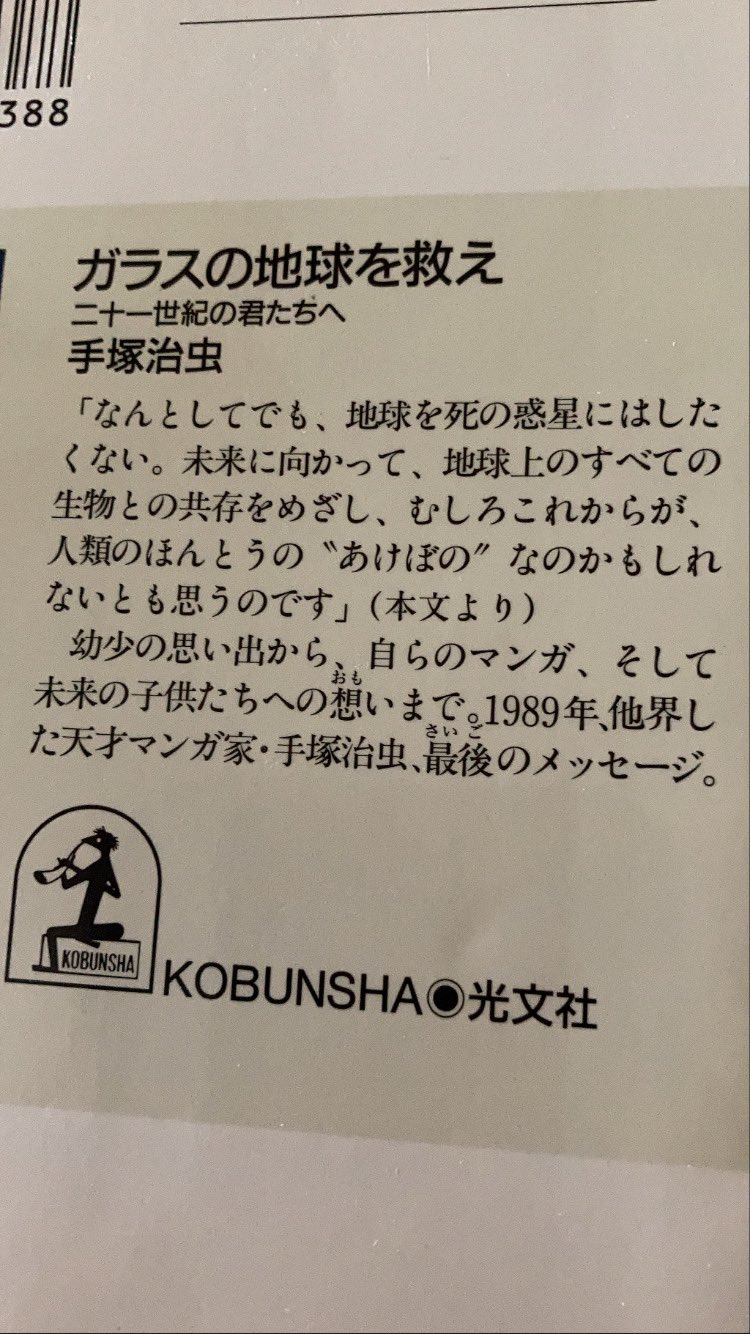 388
ガラスの地球を救え
二十一世紀の君たちへ
手塚治虫
「なんとしてでも、地球を死の惑星にはした
くない。未来に向かって、地球上のすべての
生物との共存をめざし、むしろこれからが、
人類のほんとうの〝あけぼの〟なのかもしれ
ないとも思うのです」(本文より)
幼少の思い出から、自らのマンガ、そして
おも
未来の子供たちへの想いまで。1989年、他界し
さいご
た天才マンガ家・手塚治虫、最後のメッセージ。
KOBUNSHA
KOBUNSHA◉光文社